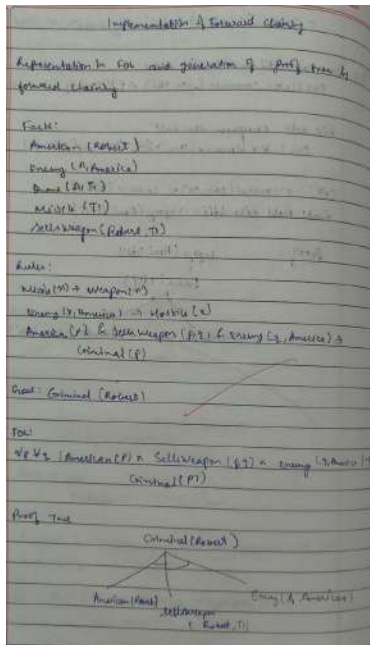 Implementation of Forward Chaining
Representation in FOL and generation of proof tree by
forward chaining
Facts:
American (Robert)
Enemy (A, America)
(A, T1)
Missile (T1)
SellsWeapon (Robert, T1)
Rules:
Missile(x) → Weapon(x)
Enemy (x, America) → Hostile (x)
American (p) & SellsWeapon (p, q) & Enemy (q, America) →
Criminal (p)
Goal: Criminal (Robert)
FOL:
∀p ∀q (American (P) ∧ SellsWeapon (p, q) ∧ Enemy (q, America)
Criminal (P)
Proof Tree
Criminal (Robert)
American (Robert)
SellsWeapon
(Robert, T1)
Enemy (A, America)